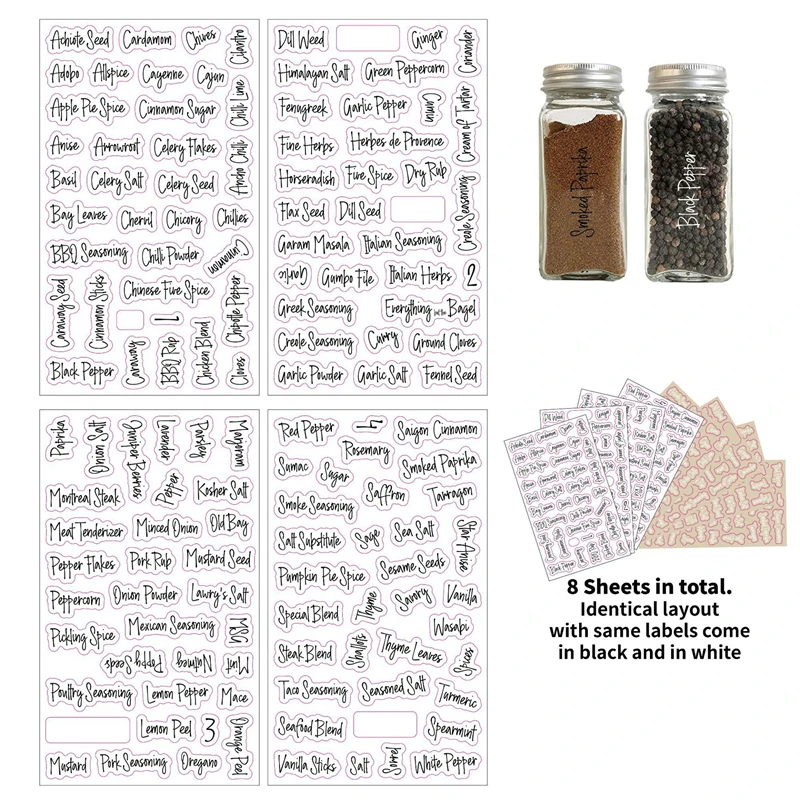 Achiote Seed
Cardamom
Chives
Cilantro
Adobo
Allspice
Cayenne
Cajun
Chilli Lime
Apple Pie Spice
Cinnamon Sugar
Anise
Arrowroot
Celery Flakes
Ancho Chilli
Basil
Celery Salt
Celery Seed
Bay Leaves
Chervil
Chicory
Chilies
BBQ Seasoning
Chilli Powder
Cinnamon
Caraway Seed
Cinnamon Sticks
Chinese Five Spice
Chipotle Pepper
1
Black Pepper
Caraway
BBQ Rub
Chicken Blend
Cloves
Dill Weed
Ginger
Coriander
Himalayan Salt
Green Peppercorn
Fenugreek
Garlic Pepper
Cumin
Cream of Tartar
Fine Herbs
Herbes de Provence
Horseradish
Five Spice
Dry Rub
Flax Seed
Dill Seed
Creole Seasoning
Garam Masala
Italian Seasoning
Garlic
Gumbo File
Italian Herbs
2
Greek Seasoning
Everything but the Bagel
Creole Seasoning
Curry
Ground Cloves
Garlic Powder
Garlic Salt
Fennel Seed
Paprika
Onion Salt
Juniper Berries
Lavender
Parsley
Marjoram
Montreal Steak
Pepper
Kosher Salt
Meat Tenderizer
Minced Onion
Old Bay
Pepper Flakes
Pork Rub
Mustard Seed
Peppercorn
Onion Powder
Lawry's Salt
Pickling Spice
Mexican Seasoning
MSG
Poppy Seeds
Nutmeg
Mint
Poultry Seasoning
Lemon Pepper
Mace
Lemon Peel
3
Orange Peel
Mustard
Pork Seasoning
Oregano
Red Pepper
4
Saigon Cinnamon
Rosemary
Sumac
Sugar
Smoked Paprika
Smoke Seasoning
Saffron
Tarragon
Salt Substitute
Sage
Sea Salt
Star Anise
Pumpkin Pie Spice
Sesame Seeds
Special Blend
Thyme
Savory
Vanilla
Wasabi
Steak Blend
Shallots
Thyme Leaves
Spices
Taco Seasoning
Seasoned Salt
Turmeric
Seafood Blend
Spearmint
Vanilla Sticks
Salt
Sorrel
White Pepper
Smoked Paprika
Black Pepper
8 Sheets in total.
Identical layout
with same labels come
in black and in white